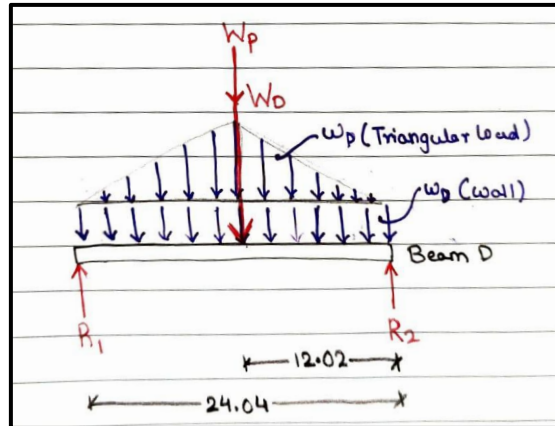 Wp
WD
wp (Triangular load)
wD (Wall)
Beam D
R1
R2
12.02
24.04